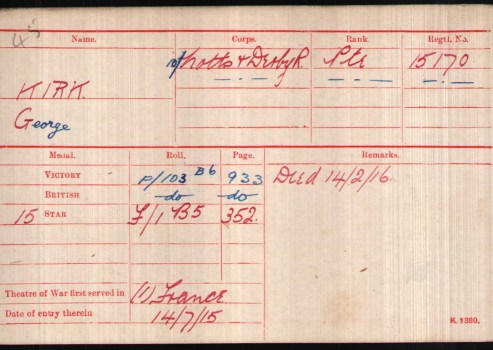 45
Name. Corps. Rank. Regtl. No.
Notts & Derby R. Pte 15170
KIRK
George
Medal. Roll. Page. Remarks.
VICTORY P/103 B6 933 Died 14/2/16
BRITISH do do
15 STAR F/1 B5 352.
Theatre of War first served in (1) France
Date of entry therein 14/7/15
K. 1380.